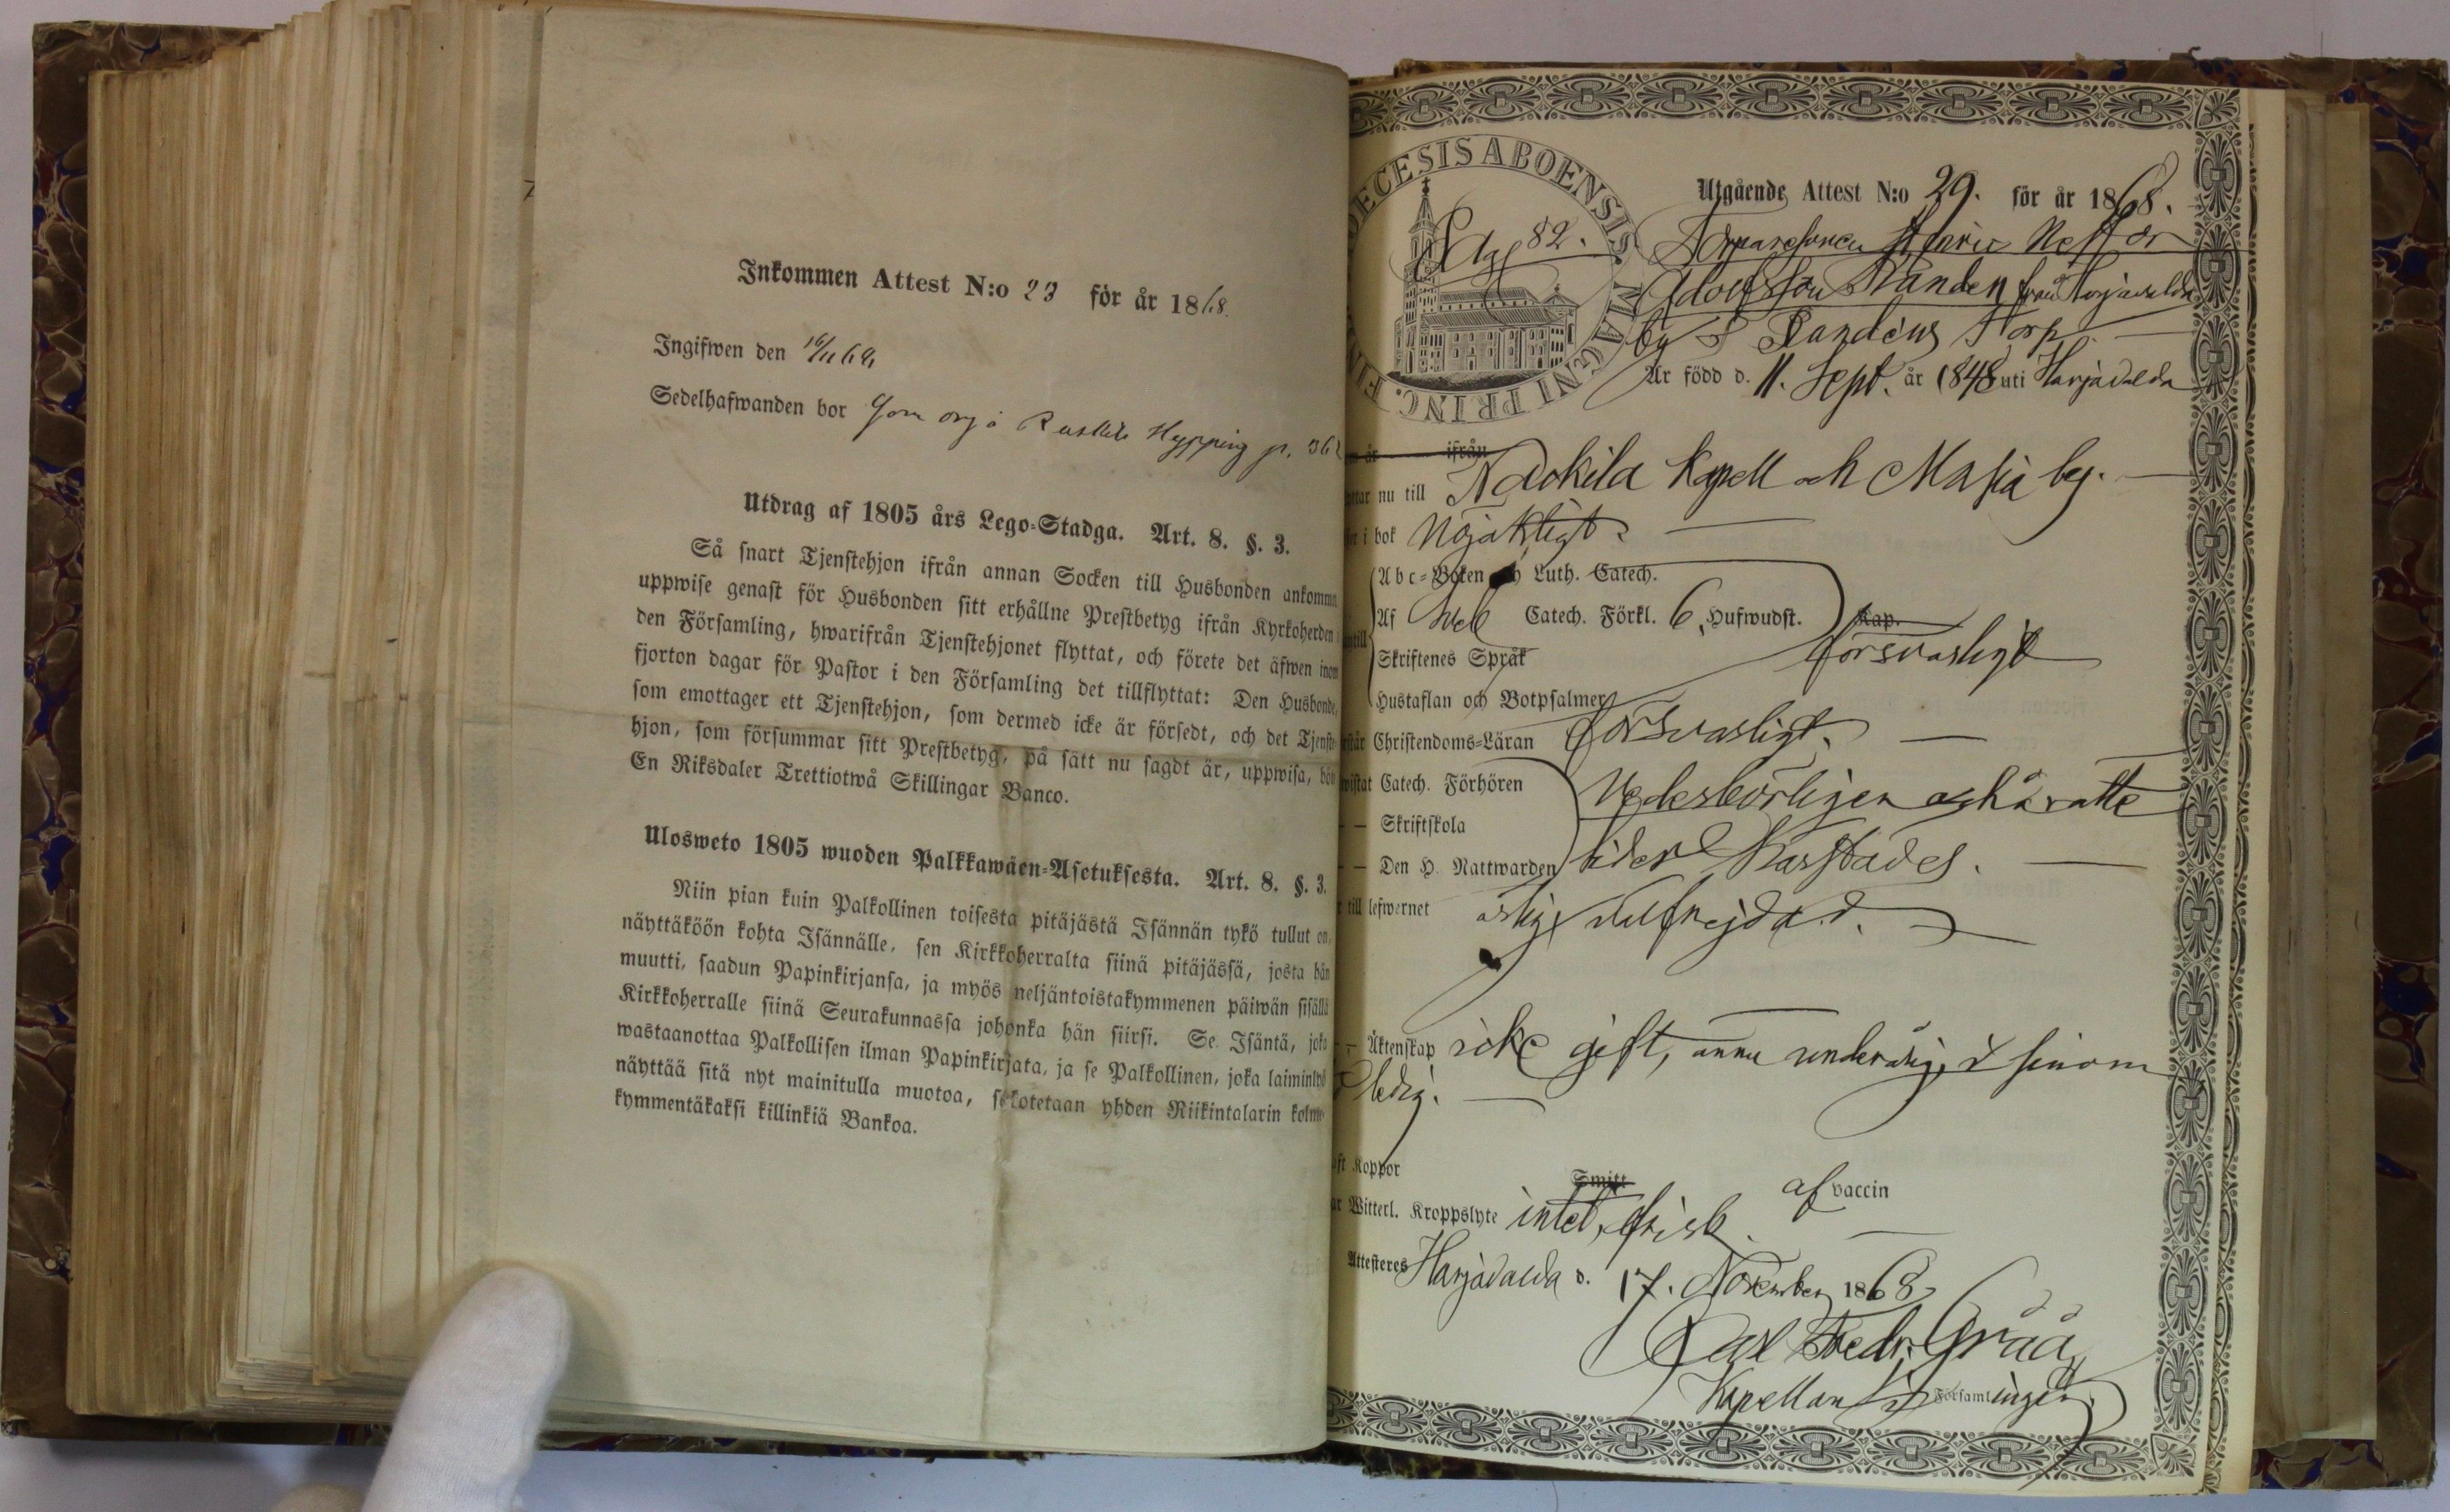 Inkommen Attest N:o 23 för år 1868.
Ingifwen den
Sedelhafwanden bor
Utdrag af 1805 års Lego-Stadga. Art. 8. §. 3.
Så snart Tjenstehjon ifrån annan Socken till Husbonden ankommer
uppwise genast för Husbonden sitt erhållne Prestbetyg ifrån Kyrkoherden
den Församling, hwarifrån Tjenstehjonet flyttat, och förete det äfwen inom
fjorton dagar för Pastor i den Församling det tillflyttat: Den Husbonde,
som emottager ett Tjenstehjon, som dermed icke är försedt, och det Tjenste-
hjon, som försummar sitt Prestbetyg, på sätt nu sagdt är, uppwisa, böte
En Riksdaler Trettiotwå Skillingar Banco.
Ulosweto 1805 wuoden Palkkawäen-Asetuksesta. Art. 8. §. 3.
Niin pian kuin Palkollinen toisesta pitäjästä Isännän tykö tullut on,
näyttäköön kohta Isännälle, sen Kirkkoherralta siinä pitäjässä, josta hän
muutti, saadun Papinkirjansa, ja myös neljäntoistakymmenen päiwän sisällä
Kirkkoherralle siinä Seurakunnassa johonka hän siirsi. Se Isäntä, joka
wastaanottaa Palkollisen ilman Papinkirjata, ja se Palkollinen, joka laiminlyö
näyttää sitä nyt mainitulla muotoa, sakotetaan yhden Riikintalarin kolme-
kymmentäkaksi killinkiä Bankoa.
DECESIS ABOENSIS MAGNI PRINC. FIN
Pag 82.
Utgående Attest N:o 29. för år 1868.
Henric
Adolfsson från Harjavalda
by Torp
Är född d. 11. Sept. år 1848 uti Harjavalda
år ifrån
nu till Kapell och
i bok Nöjaktigt
Abc-Boken och Luth. Catech.
Af Catech. Förkl. 6, Hufwudst. Kap.
försvarligt
Skriftenes Språk
Hustaflan och Botpsalmer
Christendoms-Läran försvarligt.
Catech. Förhören
Vederbörligen och å rätta
— Skriftskola
— Den H. Nattwarden
tider
till lefwernet ärlig välfrejdad.
— Äktenskap icke gift, annu underårig, & sinom
ledig.
Koppor Smitt af vaccin
Witterl. Kroppslyte intet, frisk.
Attesteres Harjavalda d. 17. November 1868
Carl Fredr. Gråå
Kapellan Församlingen